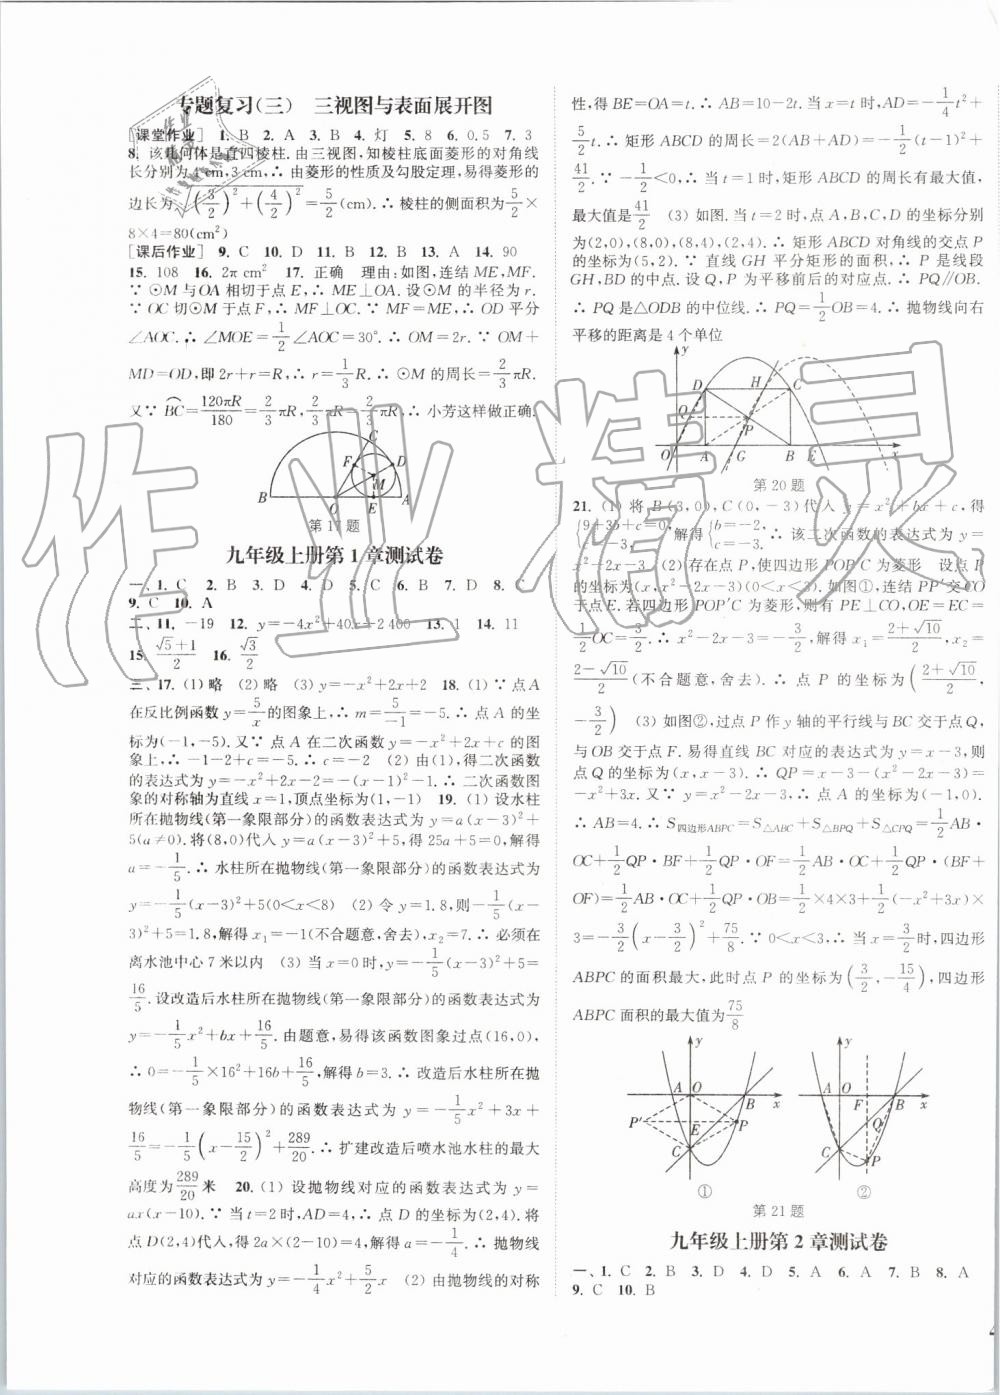 专题复习(三)　三视图与表面展开图
[课堂作业] 1. B 2. A 3. B 4. 灯 5. 8 6. 0.5 7. 3
8. 该几何体是直四棱柱.由三视图,知棱柱底面菱形的对角线
长分别为4 cm,3 cm,∴ 由菱形的性质及勾股定理,易得菱形的
边长为√((3/2)²+(4/2)²)=5/2(cm).∴ 棱柱的侧面积为5/2×
8×4=80(cm²)
[课后作业] 9. C 10. D 11. B 12. B 13. A 14. 90
15. 108 16. 2π cm² 17. 正确　理由:如图,连结ME,MF.
∵ ⊙M与OA相切于点E,∴ ME⊥OA.设⊙M的半径为r.
∵ OC切⊙M于点F,∴ MF⊥OC.∵ MF=ME,∴ OD平分
∠AOC.∴ ∠MOE=1/2∠AOC=30°.∴ OM=2r.∵ OM+
MD=OD,即2r+r=R,∴ r=1/3R.∴ ⊙M的周长=2/3πR.
又∵ BC⌒=120πR/180=2/3πR,2/3πR=2/3πR,∴ 小芳这样做正确.
C
F D
M
B O E A
第17题
九年级上册第1章测试卷
一、1. C 2. B 3. D 4. D 5. C 6. B 7. D 8. C
9. C 10. A
二、11. -19 12. y=-4x²+40x-2 400 13. 1 14. 11
15. (√5+1)/2 16. √3/2
三、17. (1) 略 (2) 略 (3) y=-x²+2x+2 18. (1) ∵ 点A
在反比例函数y=5/x的图象上,∴ m=5/-1=-5.∴ 点A的坐
标为(-1,-5).又∵ 点A在二次函数y=-x²+2x+c的图
象上,∴ -1-2+c=-5.∴ c=-2 (2) 由(1),得二次函数
的表达式为y=-x²+2x-2=-(x-1)²-1.∴ 二次函数图
象的对称轴为直线x=1,顶点坐标为(1,-1) 19. (1) 设水柱
所在抛物线(第一象限部分)的函数表达式为y=a(x-3)²+
5(a≠0).将(8,0)代入y=a(x-3)²+5,得25a+5=0,解得
a=-1/5.∴ 水柱所在抛物线(第一象限部分)的函数表达式为
y=-1/5(x-3)²+5(0<x<8) (2) 令y=1.8,则-1/5(x-
3)²+5=1.8,解得x₁=-1(不合题意,舍去),x₂=7.∴ 必须在
离水池中心7米以内 (3) 当x=0时,y=-1/5(x-3)²+5=
16/5.设改造后水柱所在抛物线(第一象限部分)的函数表达式为
y=-1/5x²+bx+16/5.由题意,易得该函数图象过点(16,0),
∴ 0=-1/5×16²+16b+16/5,解得b=3.∴ 改造后水柱所在抛
物线(第一象限部分)的函数表达式为y=-1/5x²+3x+
16/5=-1/5(x-15/2)²+289/20.∴ 扩建改造后喷水池水柱的最大
高度为289/20米 20. (1) 设抛物线对应的函数表达式为y=
ax(x-10).∵ 当t=2时,AD=4,∴ 点D的坐标为(2,4).将
点D(2,4)代入,得2a×(2-10)=4,解得a=-1/4.∴ 抛物线
对应的函数表达式为y=-1/4x²+5/2x (2) 由抛物线的对称
性,得BE=OA=t.∴ AB=10-2t.当x=t时,AD=-1/4t²+
5/2t.∴ 矩形ABCD的周长=2(AB+AD)=-1/2(t-1)²+
41/2.∵ -1/2<0,∴ 当t=1时,矩形ABCD的周长有最大值,
最大值是41/2 (3) 如图.当t=2时,点A,B,C,D的坐标分别
为(2,0),(8,0),(8,4),(2,4).∴ 矩形ABCD对角线的交点P
的坐标为(5,2).∵ 直线GH平分矩形的面积,∴ P是线段
GH,BD的中点.设Q,P为平移前后的对应点.∴ PQ∥OB.
∴ PQ是△ODB的中位线.∴ PQ=1/2OB=4.∴ 抛物线向右
平移的距离是4个单位
y
D H C
Q
P
O A G B E x
第20题
21. (1) 将B(3,0),C(0,-3)代入y=x²+bx+c,得
{9+3b+c=0, c=-3, 解得{b=-2, c=-3. ∴ 该二次函数的表达式为y=
x²-2x-3 (2) 存在点P,使四边形POP'C为菱形　设点P
的坐标为(x,x²-2x-3)(0<x<3).如图①,连结PP'交CO
于点E.若四边形POP'C为菱形,则有PE⊥CO,OE=EC=
1/2OC=3/2.∴ x²-2x-3=-3/2,解得x₁=(2+√10)/2,x₂=
(2-√10)/2(不合题意,舍去).∴ 点P的坐标为((2+√10)/2,
-3/2) (3) 如图②,过点P作y轴的平行线与BC交于点Q,
与OB交于点F.易得直线BC对应的表达式为y=x-3,则
点Q的坐标为(x,x-3).∴ QP=x-3-(x²-2x-3)=
-x²+3x.又∵ y=x²-2x-3,∴ 点A的坐标为(-1,0).
∴ AB=4.∴ S四边形ABPC=S△ABC+S△BPQ+S△CPQ=1/2AB·
OC+1/2QP·BF+1/2QP·OF=1/2AB·OC+1/2QP·(BF+
OF)=1/2AB·OC+1/2QP·OB=1/2×4×3+1/2(-x²+3x)×
3=-3/2(x-3/2)²+75/8.∵ 0<x<3,∴ 当x=3/2时,四边形
ABPC的面积最大,此时点P的坐标为(3/2,-15/4),四边形
ABPC面积的最大值为75/8
y y
A O B x A O F B x
P' E P Q
C C P
① ②
第21题
九年级上册第2章测试卷
一、1. C 2. B 3. D 4. D 5. A 6. A 7. B 8. A
9. C 10. B
作业精灵